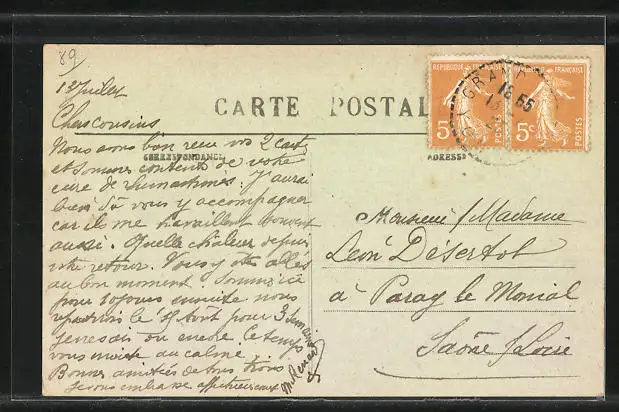 89
Juillet
Chers cousins
CARTE POSTALE
RÉPUBLIQUE FRANÇAISE
5c POSTES
RÉPUBLIQUE FRANÇAISE
5c POSTES
GRAN
CORRESPONDANCE
ADRESSE
Nous avons bien reçu vos 2 cartes
et sommes contents de votre
cure de rhumatismes. J'aurai
bien dû vous y accompagner
car ils me travaillent souvent
aussi. Quelle chaleur depuis
votre retour. Vous y êtes allés
au bon moment. Sommes ici
pour 10 jours ensuite nous
le Août pour 3 semaines
je ne sais où encore le temps
vous invite au calme.
Bonnes amitiés de tous trois
je vous embrasse affectueusement
Monsieur / Madame
Léon Désertot
à Paray le Monial
Saône / Loire